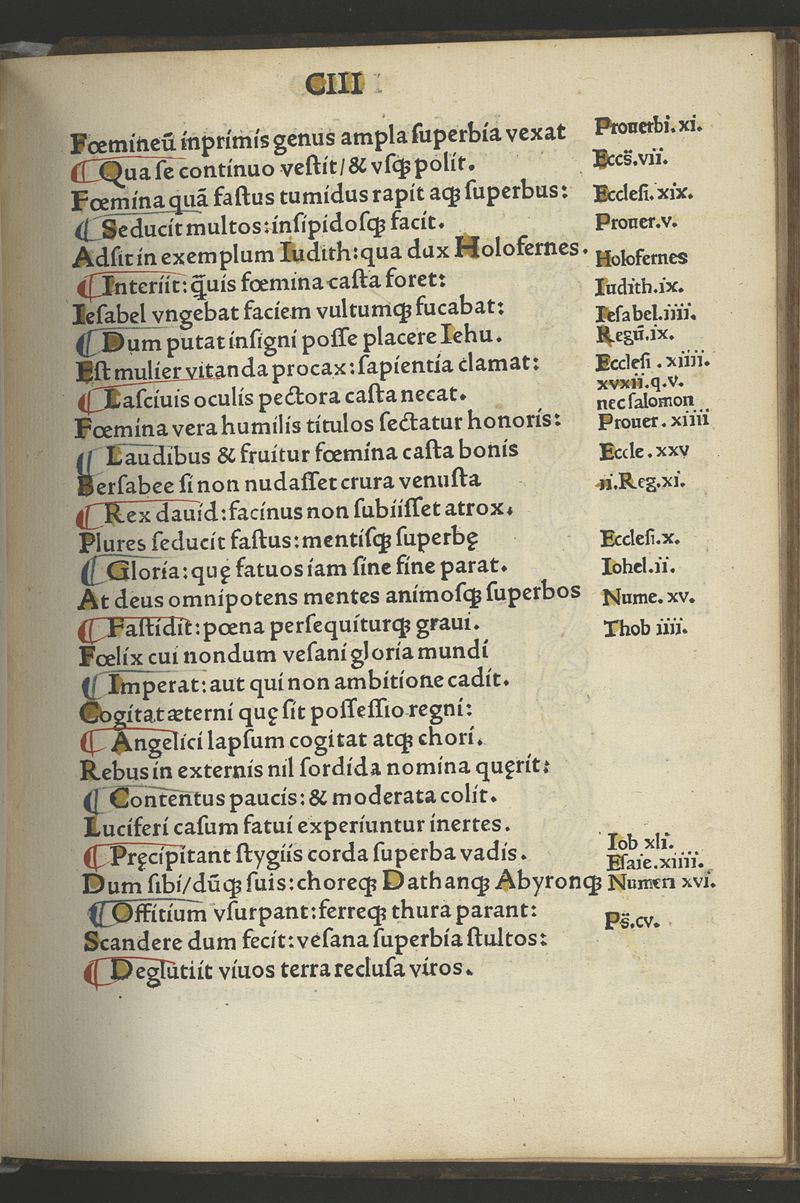 CIII
Fœmineū inprimis genus ampla ſuperbia vexat
Prouerbi.xi.
¶ Qua ſe continuo veſtit/& vſq; polit.
Eccs̄.vii.
Fœmina quā faſtus tumidus rapit aq; ſuperbus:
Eccleſi.xix.
¶ Seducit multos:inſipidoſq; facit.
Prouer.v.
Adſit in exemplum Iudith:qua dux Holofernes.
Holofernes
¶ Interiit:q̄uis fœmina caſta foret:
Iudith.ix.
Ieſabel vngebat faciem vultumq; fucabat:
Ieſabel.iiii.
¶ Dum putat inſigni poſſe placere Iehu.
Regū.ix.
Eſt mulier vitanda procax:ſapientia clamat:
Eccleſi.xiiii.
xvxii.q.v.
¶ Laſciuis oculis pectora caſta necat.
nec ſalomon
Fœmina vera humilis titulos ſectatur honoris:
Prouer.xiiii
¶ Laudibus & fruitur fœmina caſta bonis
Eccle.xxv
Berſabee ſi non nudaſſet crura venuſta
ii.Reg.xi.
¶ Rex dauid:facinus non ſubiiſſet atrox.
Plures ſeducit faſtus:mentiſq; ſuperbę
Eccleſi.x.
¶ Gloria:quę fatuos iam ſine fine parat.
Iohel.ii.
At deus omnipotens mentes animoſq; ſuperbos
Nume.xv.
¶ Faſtidit:pœna perſequiturq; graui.
Thob iiii.
Fœlix cui nondum veſani gloria mundi
¶ Imperat:aut qui non ambitione cadit.
Cogitat æterni quę ſit poſſeſſio regni:
¶ Angelici lapſum cogitat atq; chori.
Rebus in externis nil ſordida nomina quęrit:
¶ Contentus paucis:& moderata colit.
Luciferi caſum fatui experiuntur inertes.
Iob xli.
¶ Pręcipitant ſtygiis corda ſuperba vadis.
Eſaie.xiiii.
Dum ſibi/dūq; ſuis:choreq; Dathanq; Abyronq;
Numeri xvi.
¶ Offitium vſurpant:ferreq; thura parant:
Ps̄.cv.
Scandere dum fecit:veſana ſuperbia ſtultos:
¶ Deglutiit viuos terra recluſa viros.